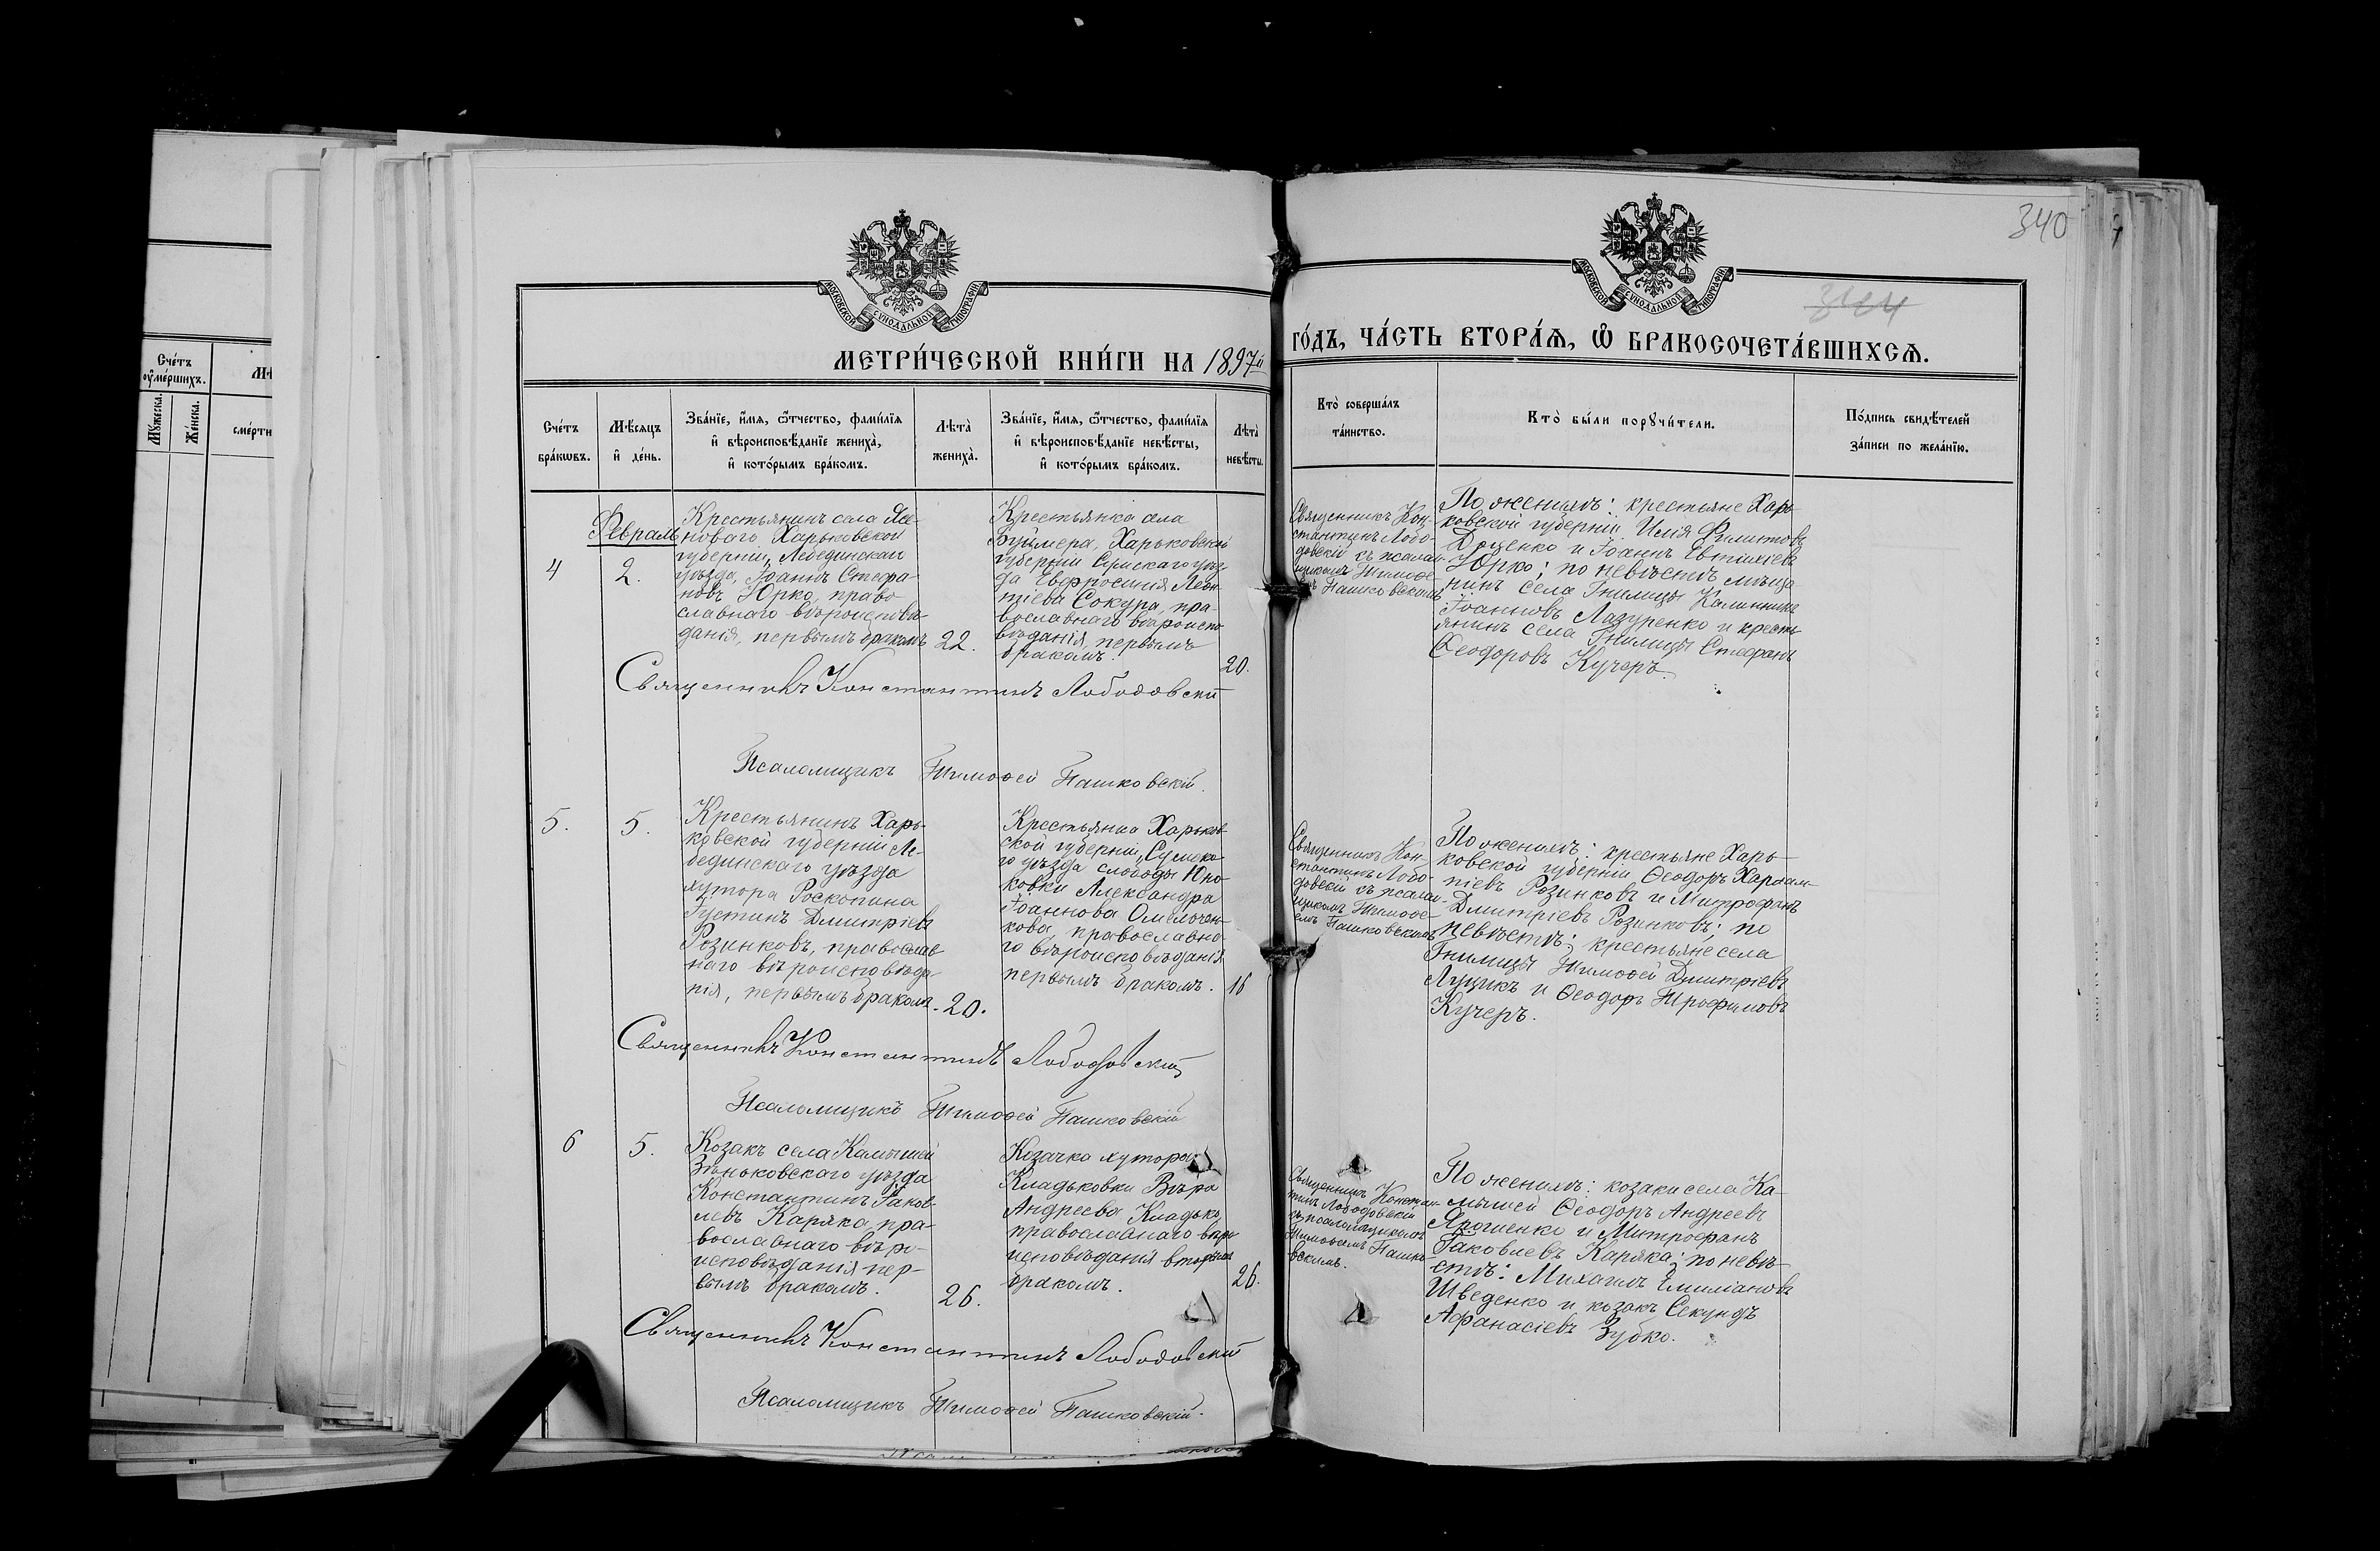 340
344
МОСКОВСКОЙ СѴНОДАЛЬНОЙ ТИПОГРАФІИ
МОСКОВСКОЙ СѴНОДАЛЬНОЙ ТИПОГРАФІИ
МЕТРИ́ЧЕСКОЙ КНИ́ГИ НА 1897й
ГО́ДЪ, ЧА́СТЬ ВТОРА́Ѧ, Ѽ БРАКОСОЧЕТА́ВШИХСѦ.
Сче́тъ
оумéршихъ.
Му́жеска.
Же́нска.
сме́рти
Сче́тъ
бра́кѡвъ.
Мѣ́сяцъ
и де́нь.
Зва́нїе, и́мѧ, ѻ҆́тчество, фами́лїѧ
и҆ вѣроисповѣ́данїе жениха̀,
и҆ кото́рымъ бра́комъ.
Лѣта̀
жениха̀.
Зва́нїе, и́мѧ, ѻ҆́тчество, фами́лїѧ
и҆ вѣроисповѣ́данїе невѣ́сты,
и҆ кото́рымъ бра́комъ.
Лѣта̀
невѣ́сты.
Кто̀ соверша́лъ
та́инство.
Кто̀ бы́ли порꙋчи́тели.
По́дпись свидѣ́телей
за́писи по жела́нію.
Февраль
4
2.
Крестьянинъ села Ясе-
новаго Харьковской
губерніи, Лебединскаго
уѣзда, Іоаннъ Стефа-
новъ Юрко, право-
славнаго вѣроисповѣ-
данія, первымъ бракомъ
22.
Крестьянка села
Буймера, Харьковской
губерніи Сумскаго уѣз-
да Евфросинія Леон-
тіева Сокура, пра-
вославнаго вѣроиспо-
вѣданія, первымъ
бракомъ.
20.
Священникъ Кон-
стантинъ Лобо-
довскій съ псалом-
щикомъ Тимоѳе-
емъ Пашковскимъ
По женихѣ: крестьяне Харь-
ковской губерніи Илія Филиповъ
Доценко и Іоаннъ Евтихіевъ
Юрко; по невѣстѣ мѣща-
нинъ села Гнилицы Калинникъ
Іоанновъ Лазуренко и кресть-
янинъ села Гнилицы Стефанъ
Ѳеодоровъ Кучеръ.
Священникъ Константинъ Лободовскій
Псаломщикъ Тимоѳей Пашковскій.
5.
5.
Крестьянинъ Харь-
ковской губерніи Ле-
бединскаго уѣзда
хутора Роскопина
Іустинъ Дмитріевъ
Розинковъ, православ-
наго вѣроисповѣда-
нія, первымъ бракомъ.
20.
Крестьянка Харьков-
ской губерніи, Сумска-
го уѣзда слободы Ино-
ковки Александра
Іоаннова Омелочен-
кова, православна-
го вѣроисповѣданія
первымъ бракомъ.
16
Священникъ Кон-
стантинъ Лобо-
довскій съ псалом-
щикомъ Тимоѳе-
емъ Пашковскимъ
По женихѣ: крестьяне Харь-
ковской губерніи Ѳеодоръ Харлам-
піевъ Розинковъ и Митрофанъ
Дмитріевъ Розинковъ; по
невѣстѣ: крестьяне села
Гнилицы Тимоѳей Дмитріевъ
Луцикъ и Ѳеодоръ Трофимовъ
Кучеръ.
Священникъ Константинъ Лободовскій
Псаломщикъ Тимоѳей Пашковскій
6
5.
Козакъ села Камышей
Зѣньковскаго уѣзда
Константинъ Іаков-
левъ Каряка, пра-
вославнаго вѣро-
исповѣданія пер-
вымъ бракомъ.
26.
Козачка хутора
Кладьковки Вѣра
Андреева Кладько,
православнаго вѣро-
исповѣданія вторымъ
бракомъ.
26.
Священникъ Констан-
тинъ Лободовскій
съ псаломщикомъ
Тимоѳеемъ Пашко-
вскимъ.
По женихѣ: козаки села Ка-
мышей Ѳеодоръ Андреевъ
Ярошенко и Митрофанъ
Іаковлевъ Каряка; по невѣ-
стѣ: Михаилъ Емиліановъ
Шведенко и козакъ Секундъ
Афанасіевъ Зубко.
Священникъ Константинъ Лободовскій
Псаломщикъ Тимоѳей Пашковскій.